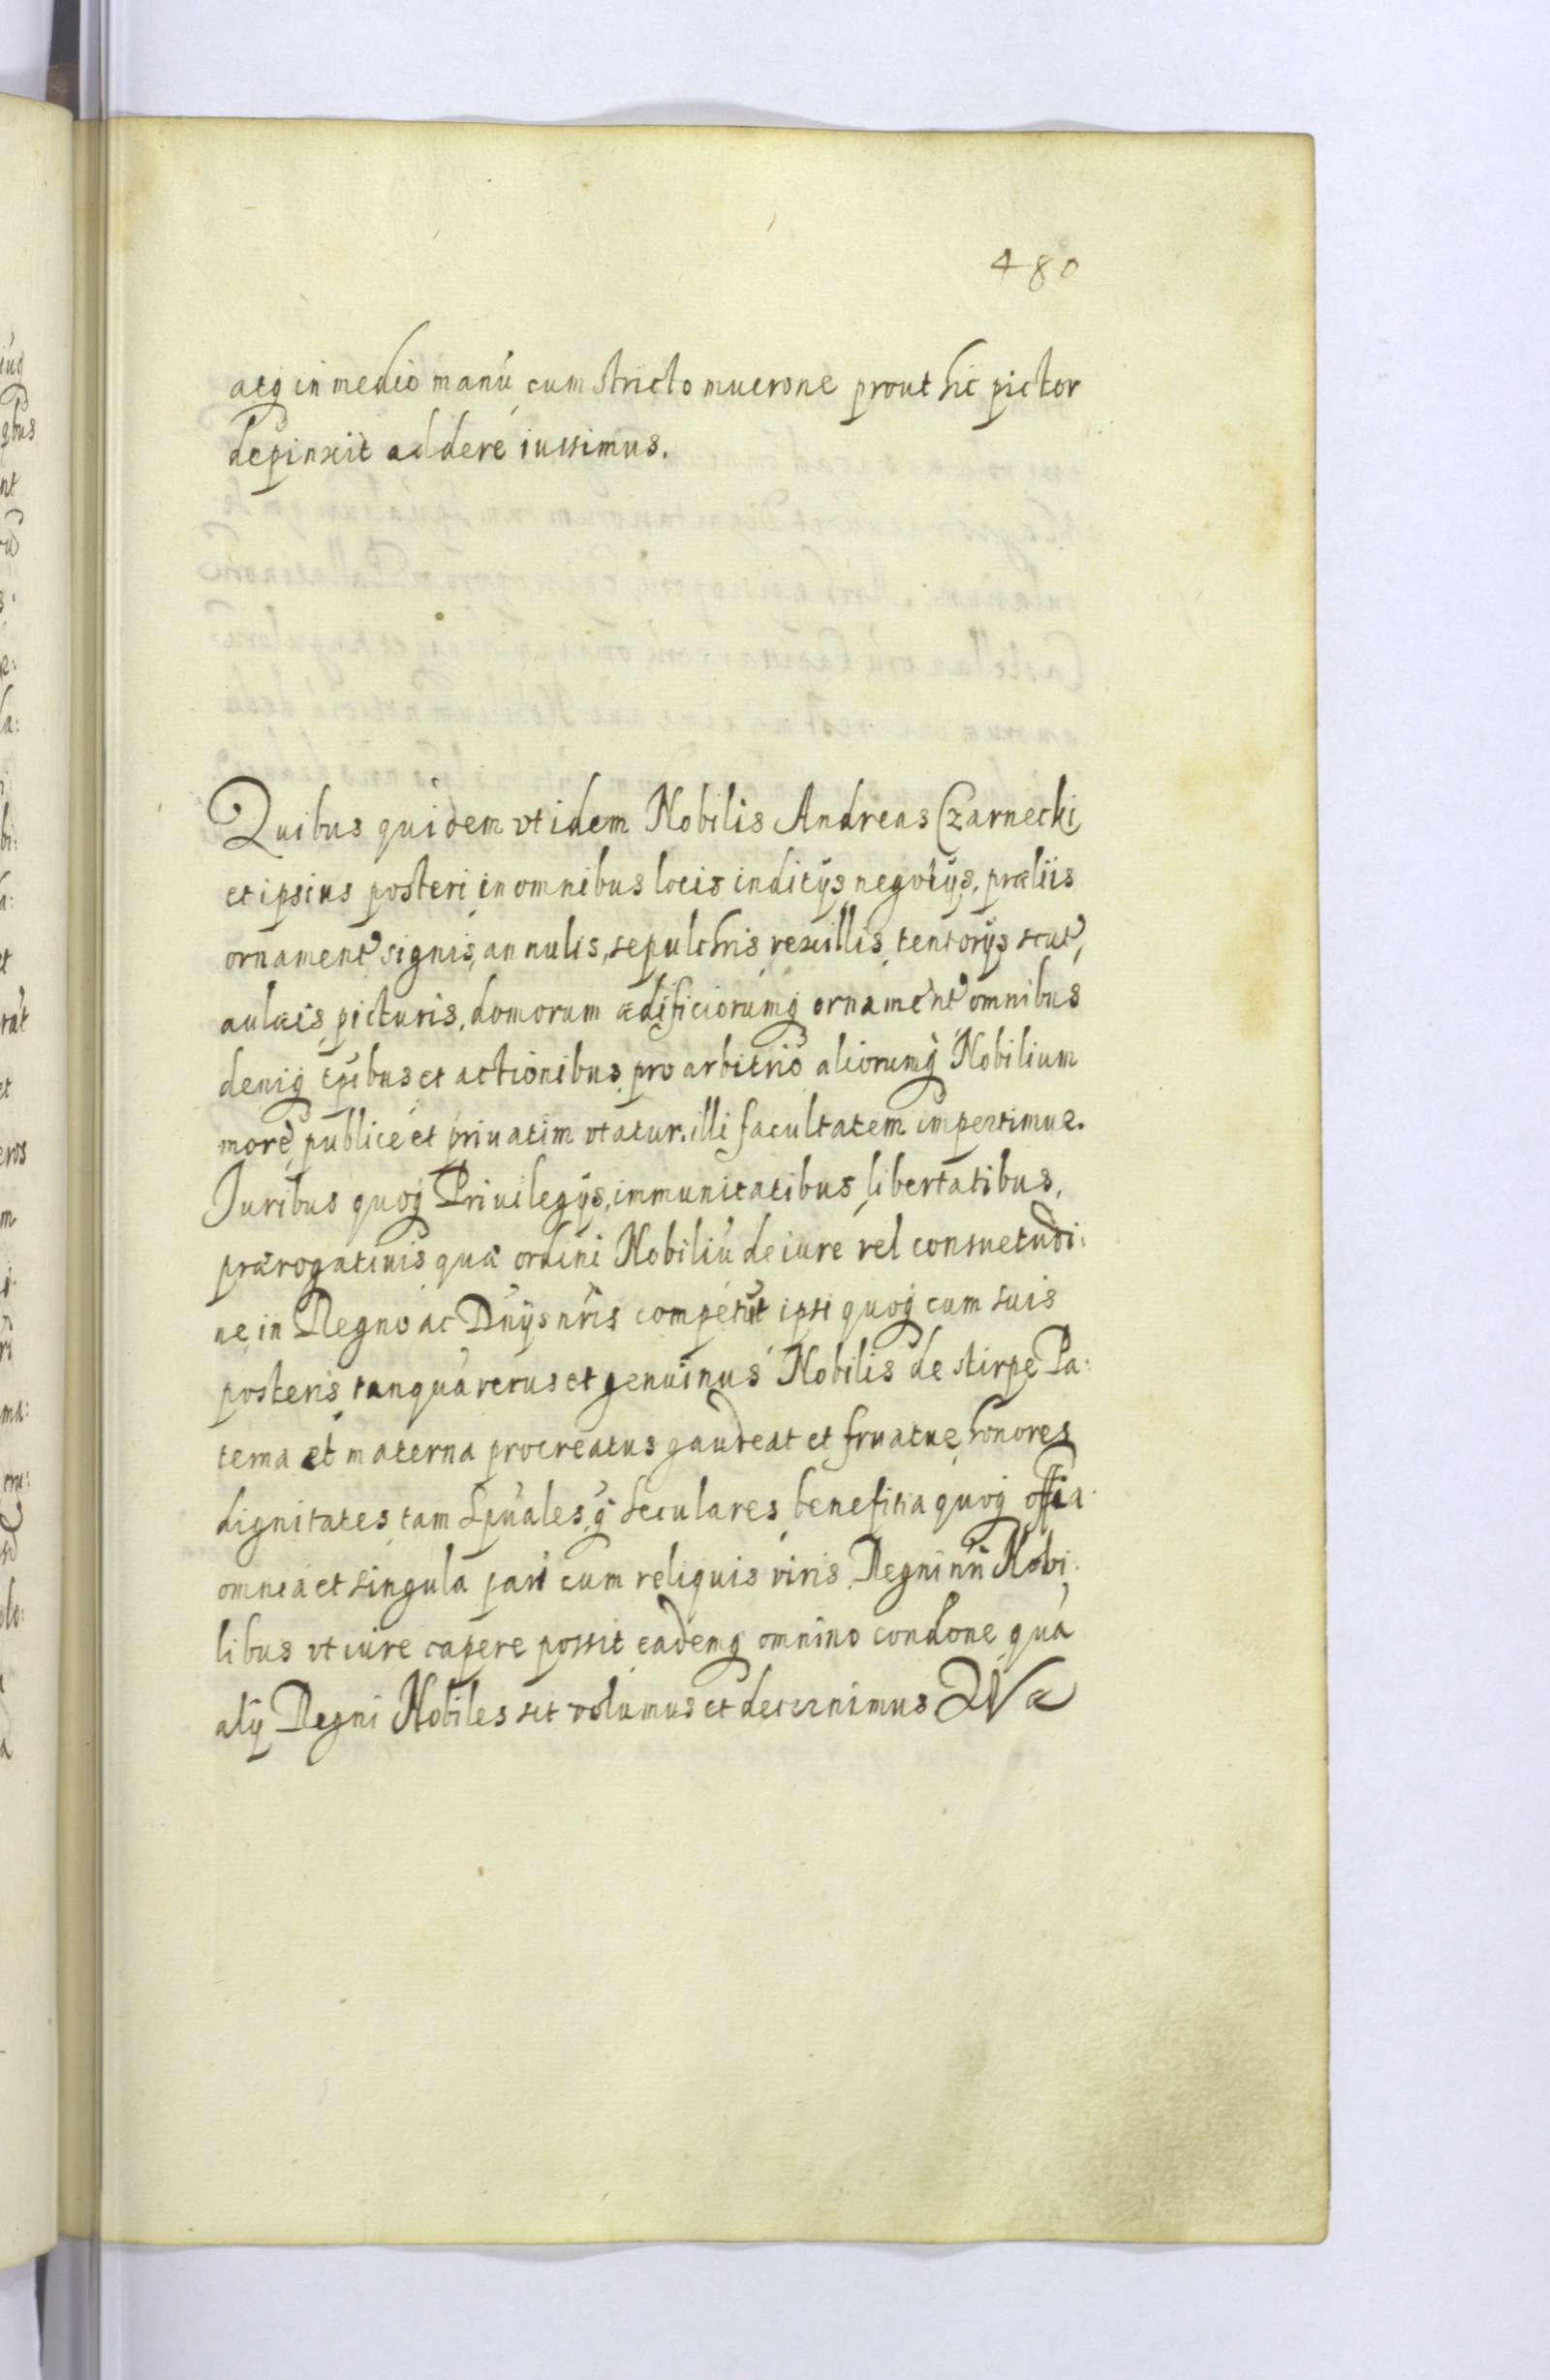 480
atq in medio manu cum stricto mucrone prout hic pictor
depinxit addere iussimus.
Quibus quidem vt idem Nobilis Andreas Czarnecki
et ipsius posteri in omnibus locis inditÿs negotÿs, præliis
ornament signis, annulis, sepulchris vexillis, tentorÿs scut,
aulæis picturis, domorum ædificiorumq ornament omnibus
deniq tpibus et actionibus pro arbitrio aliorumq Nobilium
more publice et priuatim vtatur. illi facultatem impertimur.
Juribus quoq Priuilegÿs, immunitatibus libertatibus,
prærogatiuis quæ ordini Nobiliu de iure vel consuetudi:
ne in Regno ac Dnÿs nris competut ipse quoq cum suis
posteris tanqua verus et genuinus Nobilis de stirpe Pa:
terna et materna procreatus gaudeat et fruatur, honores
dignitates tam Spuales q seculares benefitia quoq offia
omnia et singula pari cum reliquis viris Regni nri Nobi:
libus vt iure capere possit eademq omnino condone qua
alÿ Regni Nobiles sit volumus et decernimus